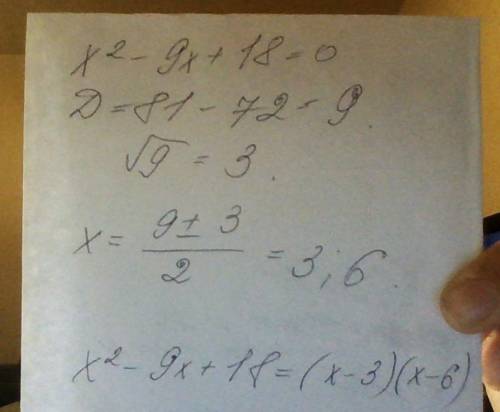 x² - 9x + 18 = 0
D = 81 - 72 = 9.
√9 = 3.
x = (9 ± 3)/2 = 3; 6.
x² - 9x + 18 = (x-3)(x-6)